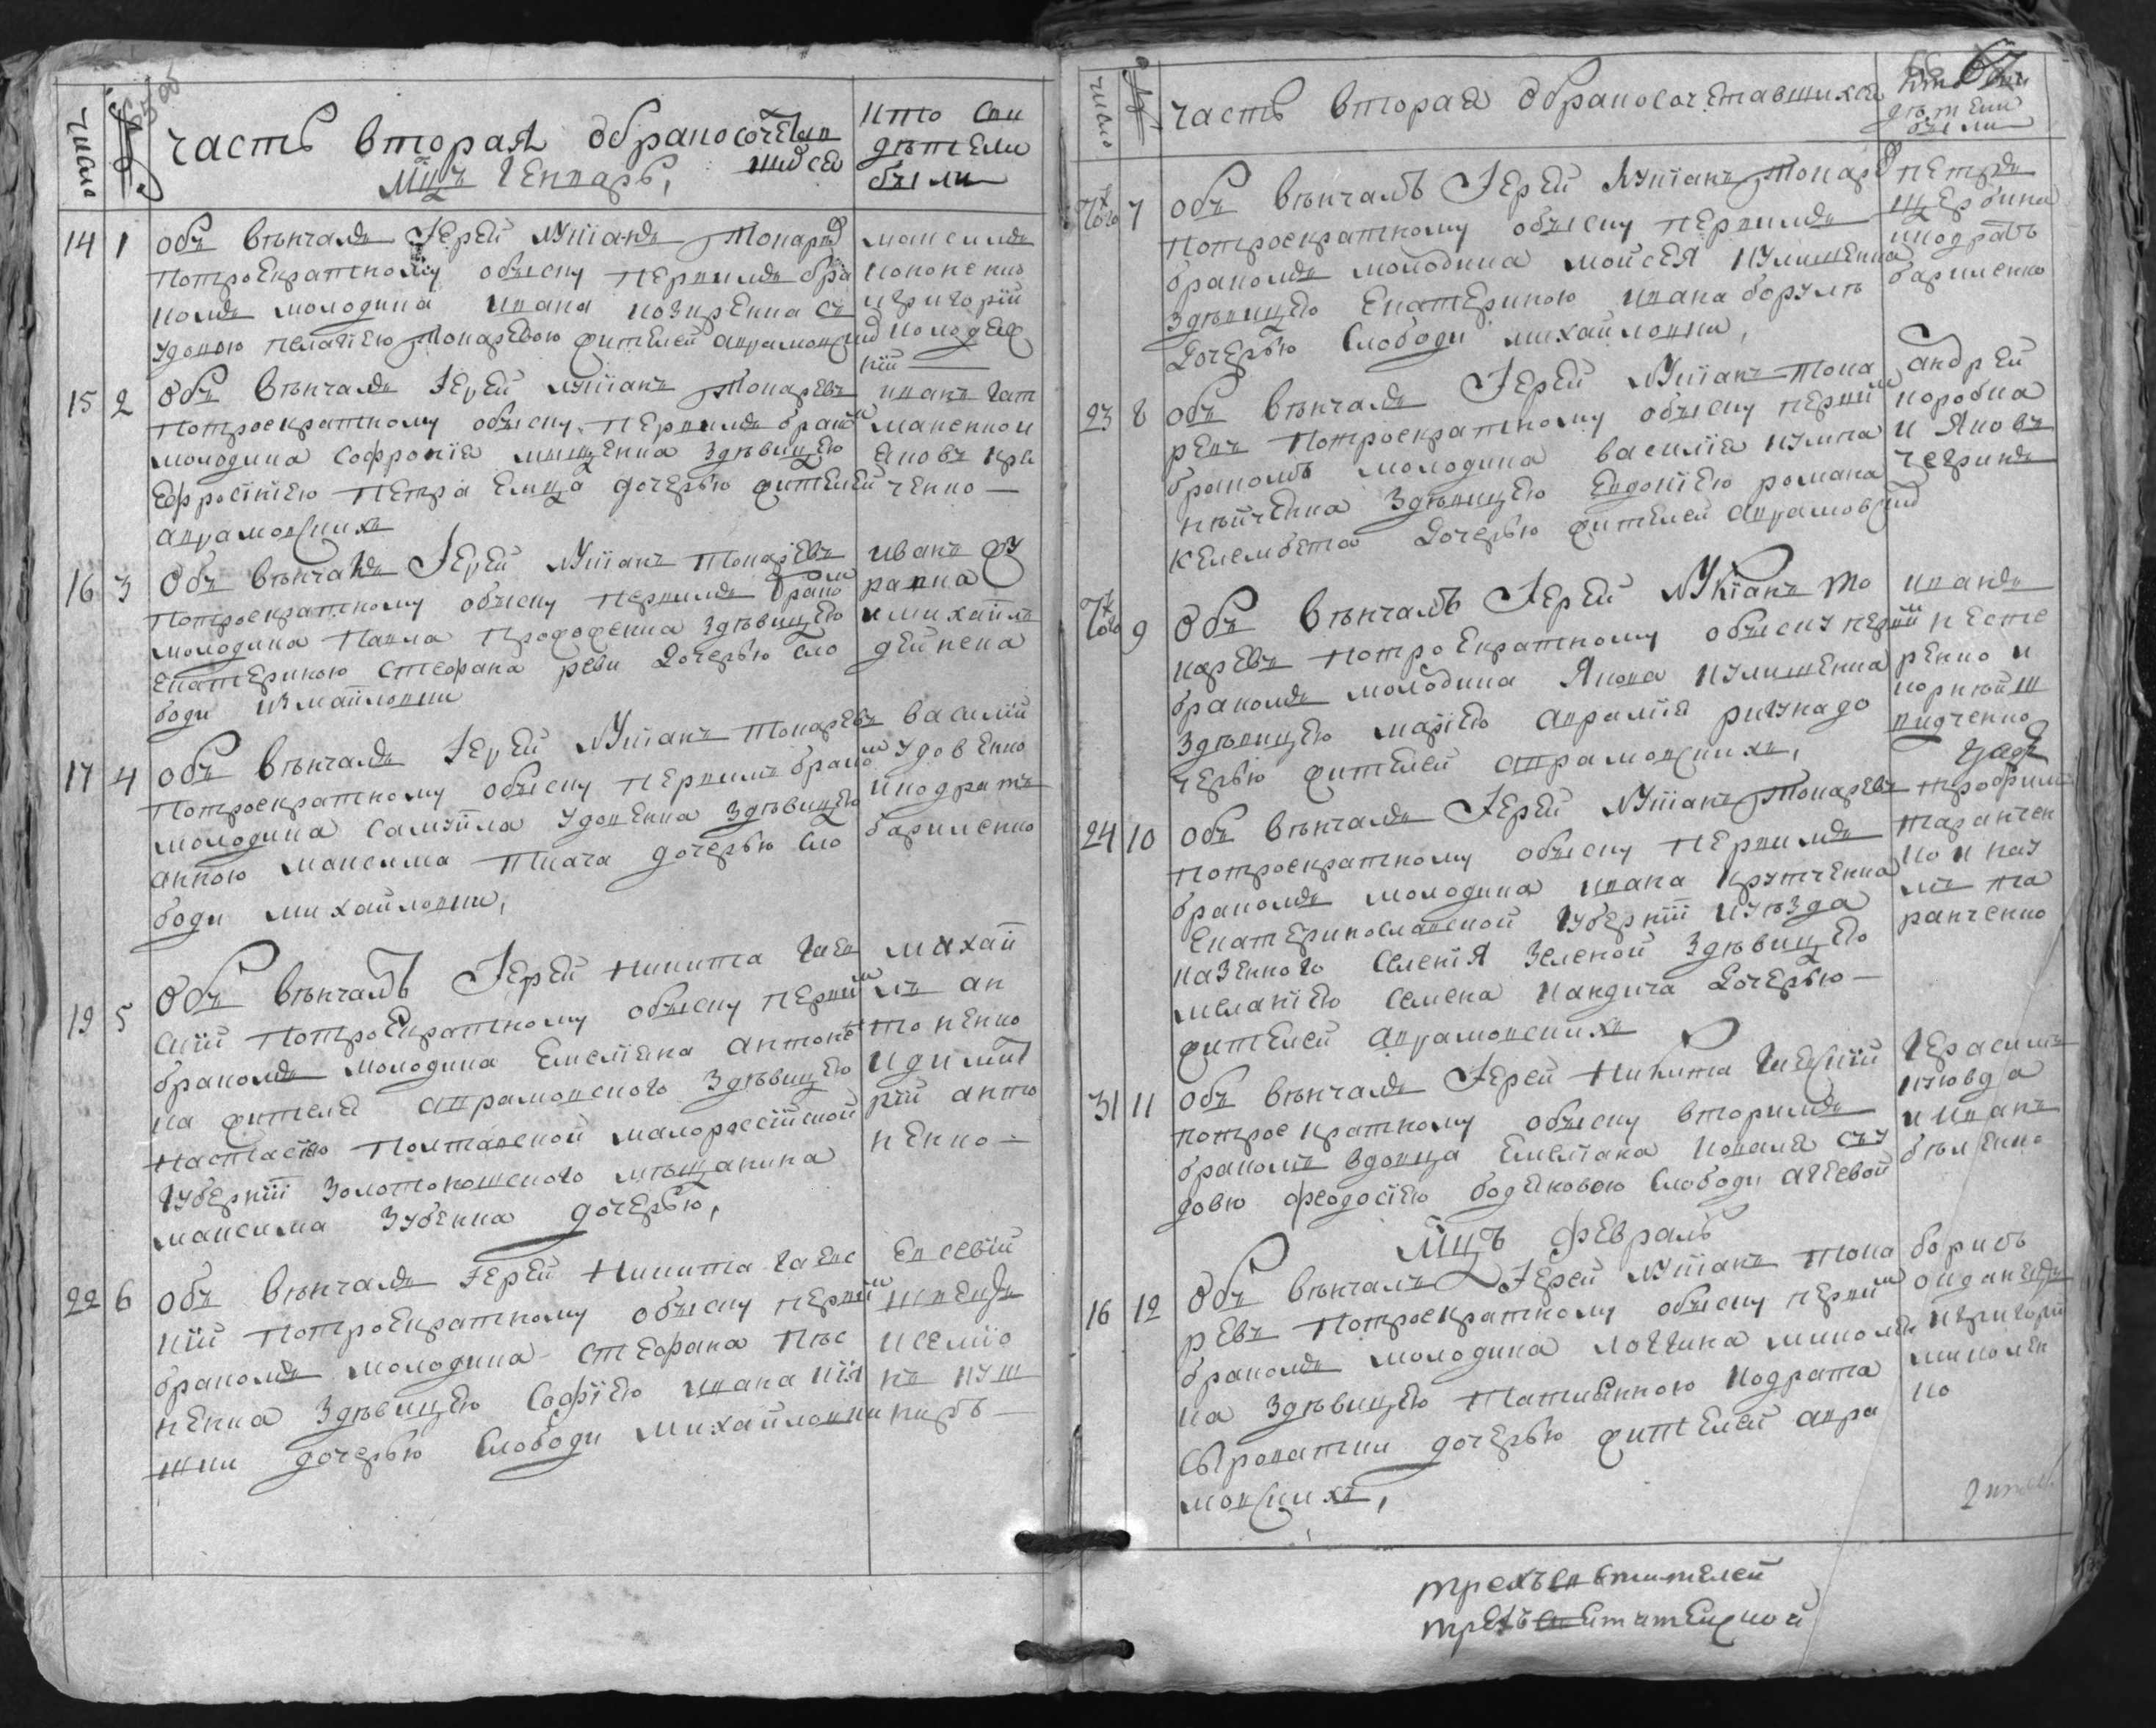 число
№
часть вторая обракосочетав
шихся
Мцъ Генварь,
кто сви
дѣтели
были
14 1 обв вѣнчалъ Іерей Лукіанъ Токаре
потроекратному обыску первимъ бра
комъ молодика ивана козиренка съ
удовою пелагіею Токаревою жителей аврамовс
максимъ
кононенко
игригорій
колодяж
ній
15 2 обв вѣнчалъ Іерей Лукіанъ Токаревъ
потроекратному обыску первимъ браком
молодика Софронія мищенка здѣвицею
Ефросініею петра Емца дочерью жителей
аврамовских
иванъ гат
маненко и
яковъ кри
ченко
16 3 обв вѣнчалъ Іерей Лукіанъ Токаревъ
потроекратному обыску первимъ браком
молодика павла Прокофенка здѣвицею
Екатериною Стефана реви Дочерью сло
боди михайловки
иванъ жу
равка
и михайлъ
дейнека
17 4 обв вѣнчалъ Іерей Лукіанъ Токаревъ
потроекратному обыску первимъ браком
молодика Самуила удовенка здѣвицею
анною максима ткача дочерью сло
боди михайловки,
василій
удовенко
икодратъ
бариленко
19 5 обв вѣнчалъ Іерей Никита Гаев
скій потроекратному обыску первим
бракомъ молодика Емеліяна антонен
ка жителя аврамовского здѣвицею
Настасіею полтавской малороссійской
губерніи золотоношеского мѣщанина
максима зубенка дочерью,
михай
лъ ан
тоненко
и димит
рій анто
ненко
22 6 обв вѣнчалъ Іерей Никита гаевс
кій потроекратному обыску первим
бракомъ молодика Стефана пѣс
ненка здѣвицею Софіею ивана кія
шки дочерью слободи михайловки
Евсевій
шведъ
исеміо
нъ куш
нирь
число
№
часть вторая обракосочетавшихся
67
дѣтели
были
того 7 обв вѣнчалъ Іерей Лукіанъ Токаре
потроекратному обыску первимъ
бракомъ молодика мойсея кулишенка
здѣвицею Екатериною ивана борулѣ
Дочерью слободи михайловки,
петръ
щербина
икодратъ
бариленко
23 8 обв вѣнчалъ Іерей Лукіанъ Тока
ревъ потроекратному обыску первим
бракомъ молодика василія кулпа
нѣйченка здѣвицею Евдокіею романа
келембета Дочерью жителей аврамовс
андрей
коробка
и Яковъ
чегринъ
того 9 обв вѣнчалъ Іерей Лукіанъ то
каревъ потроекратному обыску первим
бракомъ молодика Якова кулишенка
здѣвицею маріею аврамія до
черью жителей аврамовских,
иванъ
несте
ренко и
24 10 обв вѣнчалъ Іерей Лукіанъ Токаревъ
потроекратному обыску первимъ
бракомъ молодика ивана крутченка
Екатеринославской губерніи иуѣзда
казенного селенія зеленой здѣвицею
меланіею семена кандича Дочерью
жителей аврамовских
трофим
таранчен
ко и пау
лъ та
ранченко
31 11 обв вѣнчалъ Іерей Никита Гаевскій
потроекратному обыску вторимъ
бракомъ вдовца Емеліана коваля съу
довю феодосіею бодяковою слободи агіевой
герасимъ
кужвда
и иванъ
бѣленко
Мцъ февраль
16 12 обв вѣнчалъ Іерей Лукіанъ Тока
ревъ потроекратному обыску первим
бракомъ молодика логгина миколен
ка здѣвицею Татиянною кодрата
Сыроватки дочерью жителей авра
мовских,
борисъ
игригорій
миколен
ко
трехъсвятителей